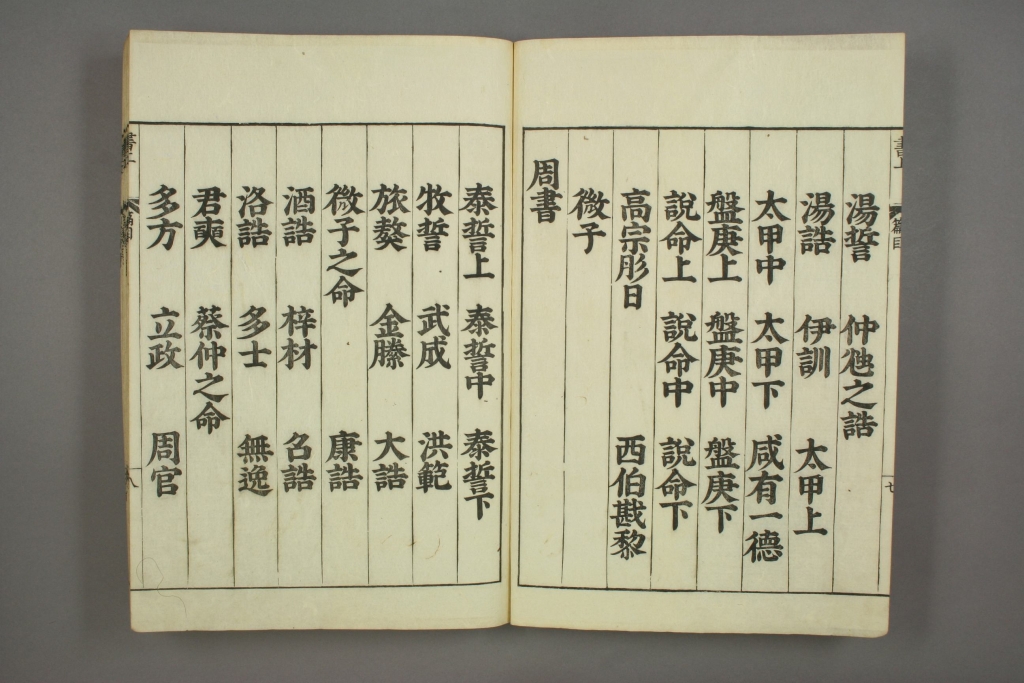 湯誓 仲虺之誥
湯誥 伊訓 太甲上
太甲中 太甲下 咸有一德
盤庚上 盤庚中 盤庚下
說命上 說命中 說命下
高宗肜日 西伯戡黎
微子
周書
泰誓上 泰誓中 泰誓下
牧誓 武成 洪範
旅獒 金縢 大誥
微子之命 康誥
酒誥 梓材 召誥
洛誥 多士 無逸
君奭 蔡仲之命
多方 立政 周官
篇目
七
八